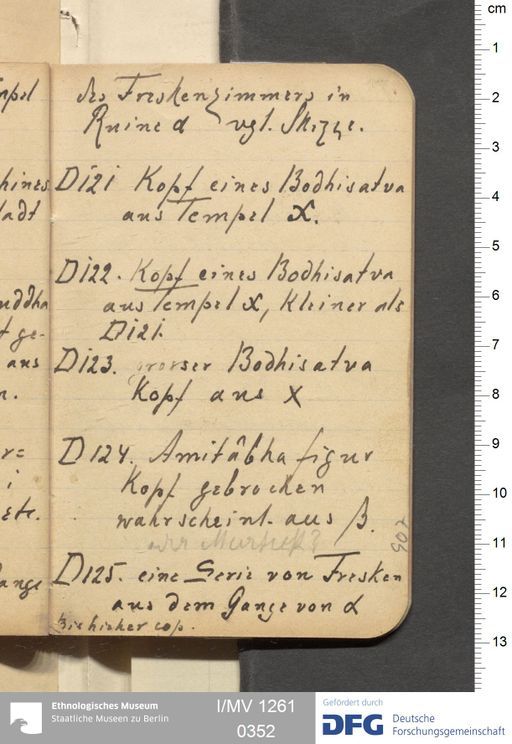 des Freskenzimmers in
Ruine α vgl. Skizze.
D 121 Kopf eines Bodhisatva
aus Tempel X.
D 122. Kopf eines Bodhisatva
aus Tempel X, kleiner als
D 121.
D 123. grosser Bodhisatva
Kopf aus X
D 124. Amitâbha figur
Kopf gebrochen
wahrscheinl. aus β.
907
D 125. eine Serie von Fresken
aus dem Gange von α
bis hieher cop.
mpel
hines
adt
uddha
t ge-
aus
n.
r=
i
etc.
ange
cm
1
2
3
4
5
6
7
8
9
10
11
12
13
Ethnologisches Museum
Staatliche Museen zu Berlin
I/MV 1261
0352
Gefördert durch
DFG Deutsche
Forschungsgemeinschaft